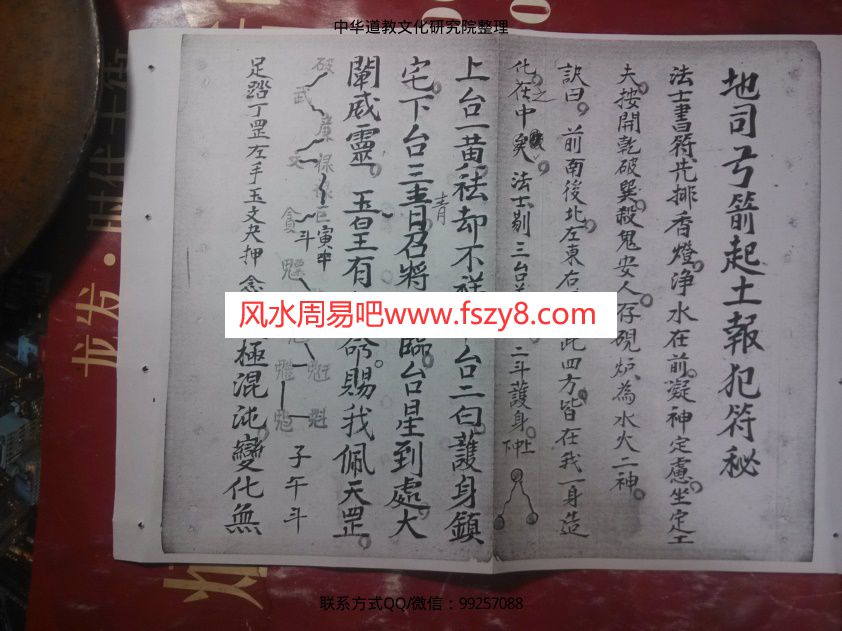 中华道教文化研究院整理
地司弓箭起土報犯符秘
法士書符先排香燈淨水在前凝神定慮坐定工
夫按開乾破巽殺鬼安人存硯炉為水火二神
訣曰前南後北左東右 此四方皆在我一身造
化之在中矣法士剔三台 二斗護身
上台一黃祛却不祥 台二白護身鎮
宅下台三青召將 臨台星到處大
青
闡威靈玉皇有 命賜我佩天罡
破武廉文祿巨貪
寅 斗
魁
子午斗
足踏丁罡左手玉文夬押念 極混沌變化無
风水周易吧www.fszy8.com
龙发·时代
联系方式QQ/微信：99257088